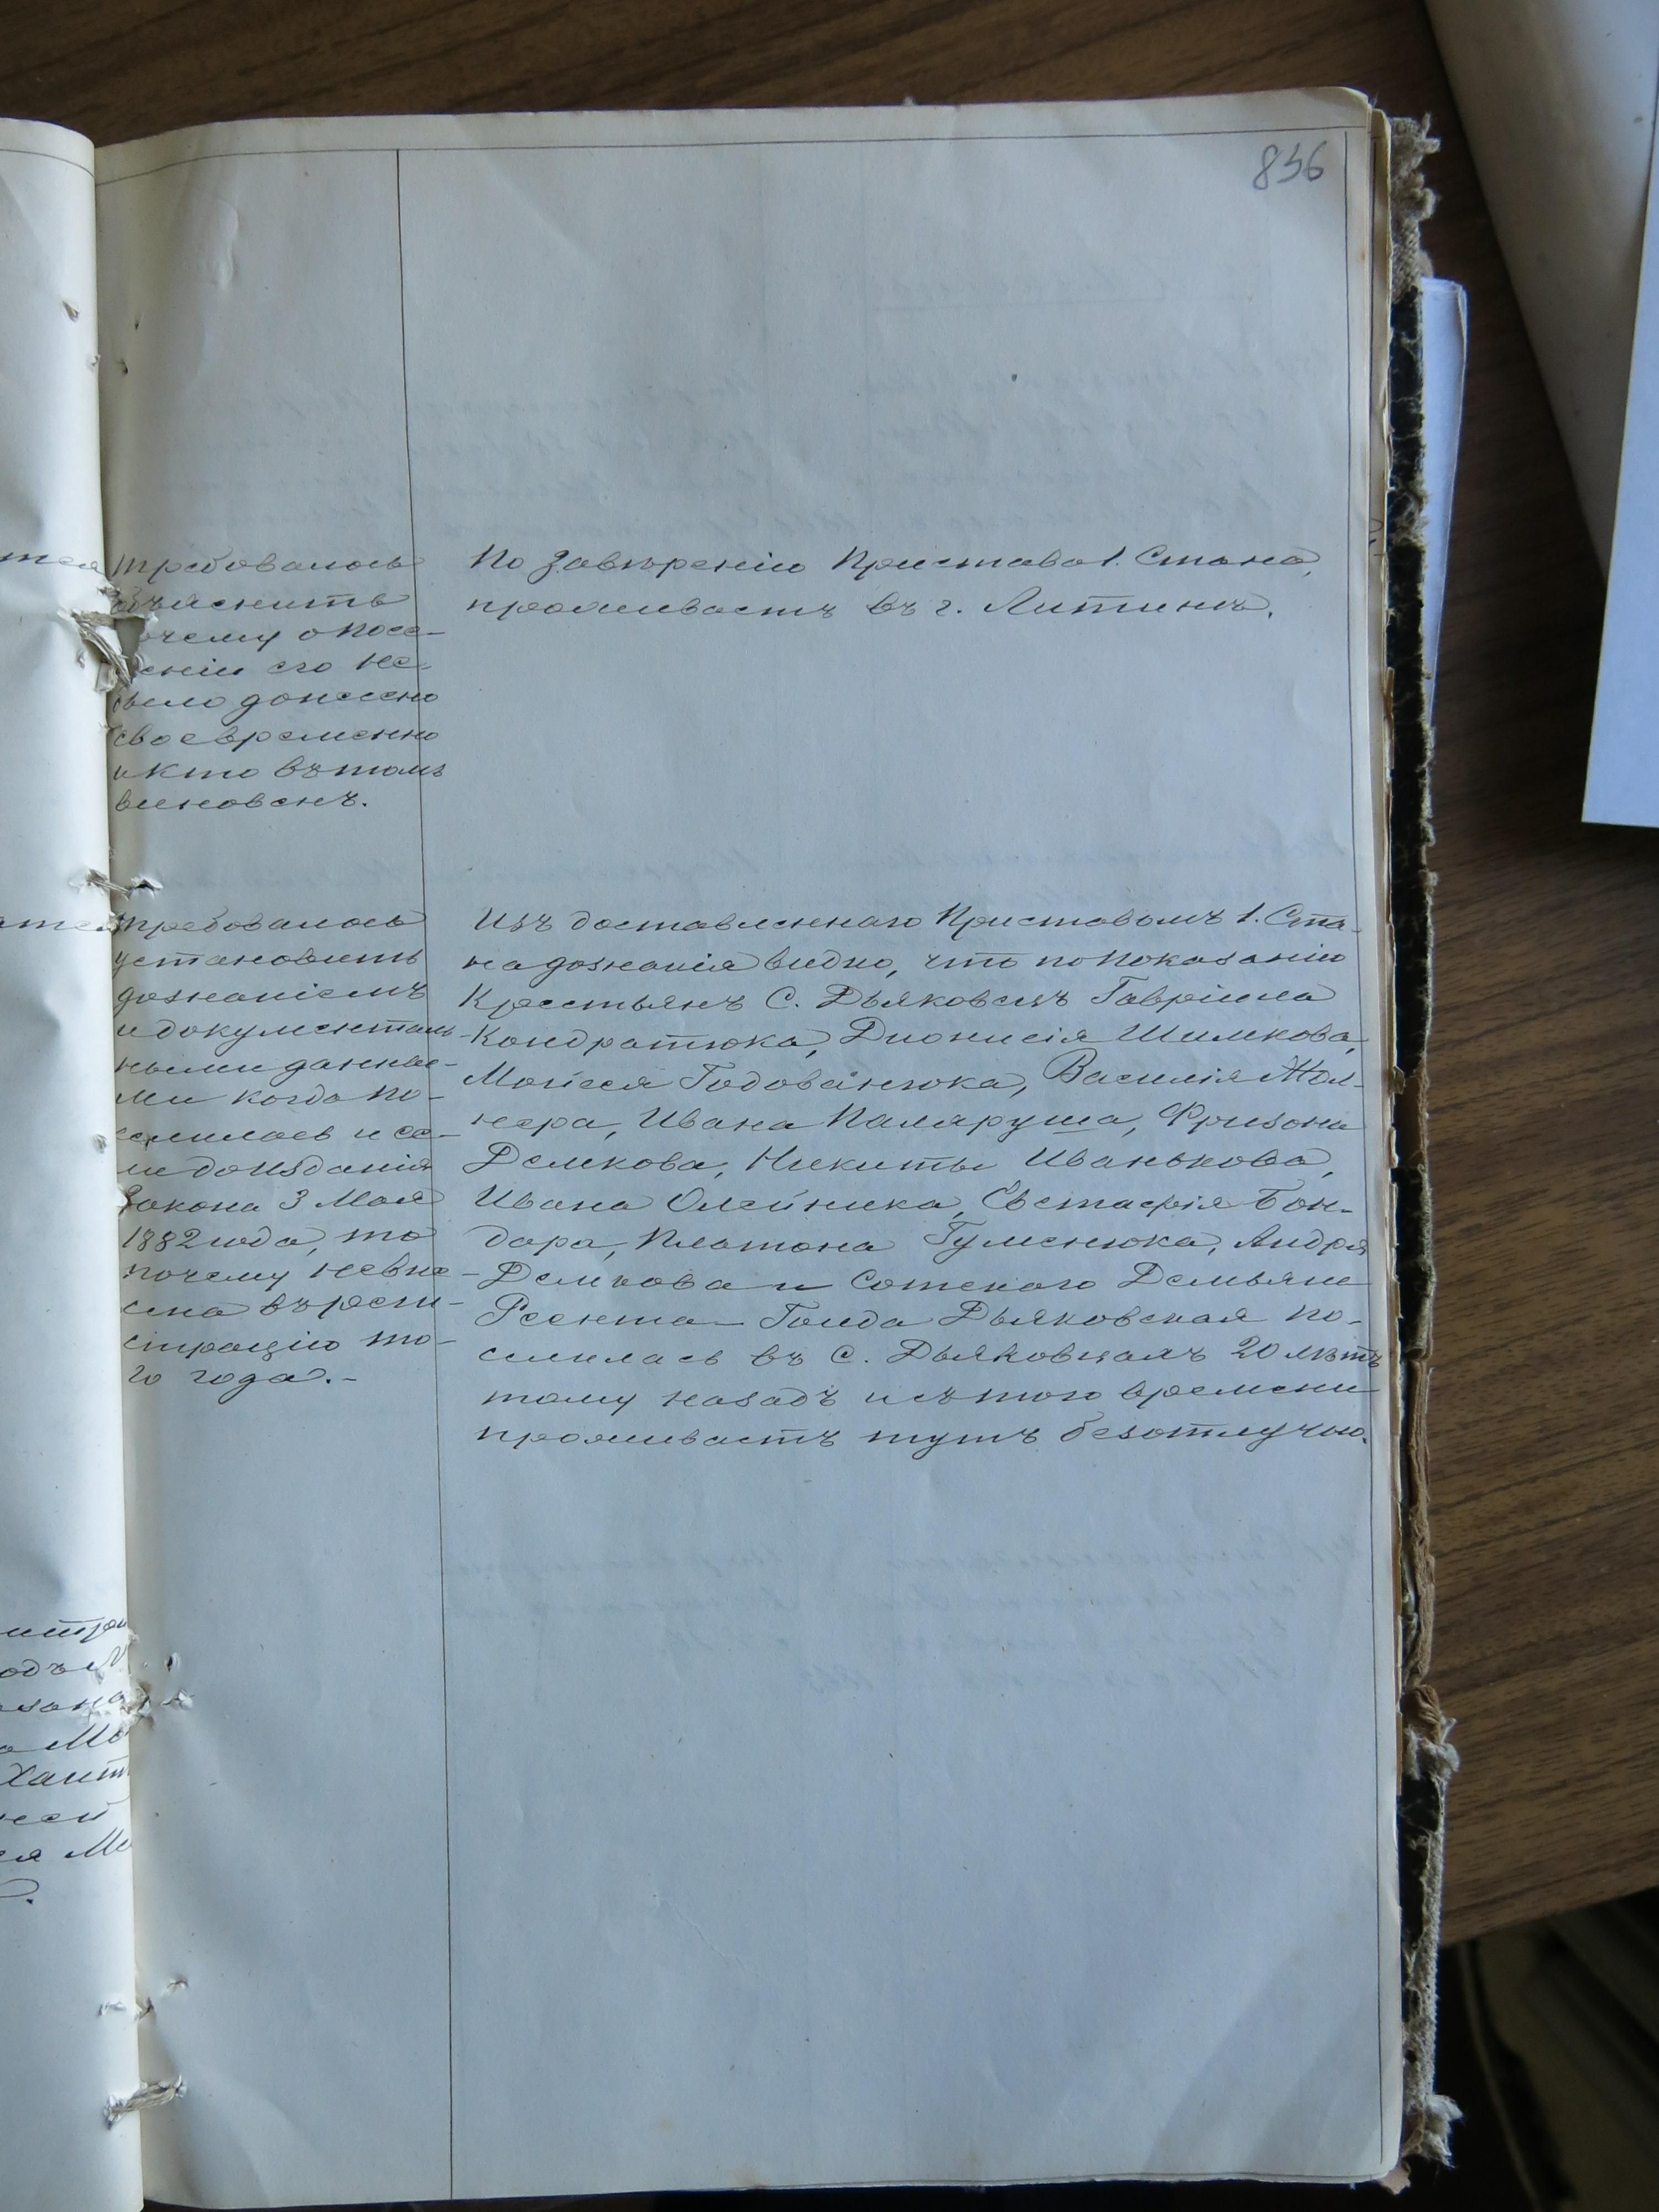 836
требовалось
объяснить
почему о посе-
леніи его не
было донесено
своевременно
и кто въ томъ
виновенъ.
По завѣренію Пристава 1. Стана,
проживаетъ въ г. Литинѣ.
требовалось
установить
дознаніемъ
и документаль-
ными данны-
ми когда по-
селилась и ес-
ли до изданія
Закона 3 Мая
1882 года, то
почему не вне-
сена въ реги-
страцію то-
го года.-
Изъ доставленнаго Приставомъ 1. Ста-
на дознанія видно, что по показанію
Крестьянъ С. Дьяковецъ Гавріила
Кондратюка, Діонисія Шимкова,
Мойсея Годованюка, Василія Жол-
нера, Ивана Паляруша, Фризона
Демкова, Никиты Иванькова,
Ивана Олейника, Евстафія Бон-
дара, Платона Гуменюка, Андрея
Демкова и Сотскаго Демьяна
Гольда Дьяковская по-
селилась въ С. Дьяковцахъ 20 лѣтъ
тому назадъ и съ того времени
проживаетъ тутъ безотлучно.